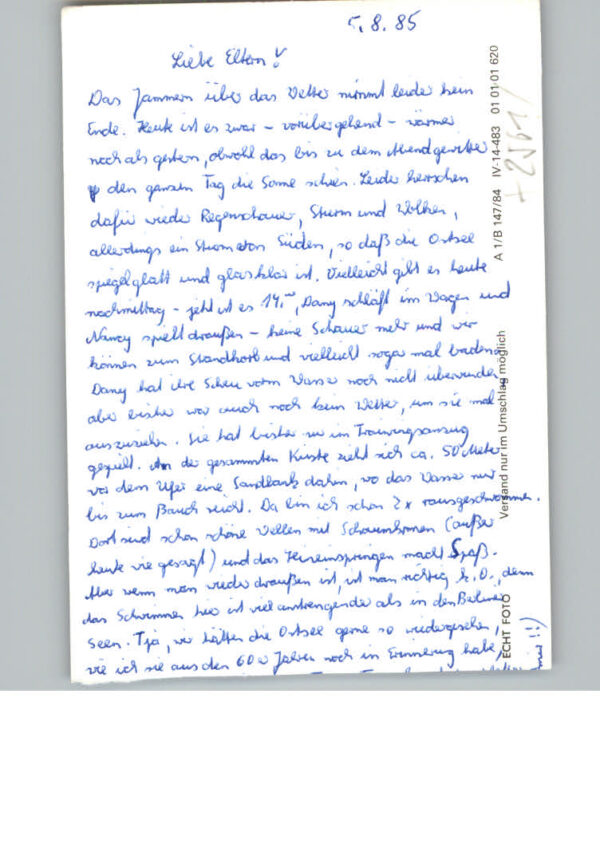 5.8.85
Liebe Eltern!
Das Jammern über das Wetter nimmt leider kein
Ende. Heute ist es zwar – vorübergehend – wärmer
noch als gestern, obwohl das bis zu dem Abendgewitter
den ganzen Tag die Sonne schien. Leider herrschen
dafür wieder Regenschauer, Sturm und Wolken,
allerdings ein Sturm von Süden, so daß die Ostsee
spiegelglatt und glasklar ist. Vielleicht gibt es heute
nachmittag – jetzt ist es 14.00, Dany schläft im Wagen und
Nancy spielt draußen – keine Schauer mehr und wir
können zum Strandkorb und vielleicht sogar mal baden.
Dany hat ihre Scheu vorm Wasser noch nicht überwunden,
aber bisher war auch noch kein Wetter, um sie mal
auszuziehen. Sie hat bisher nur im Trainingsanzug
gespielt. An der gesammten Küste zieht sich ca. 50 Meter
vor dem Ufer eine Sandbank dahin, wo das Wasser nur
bis zum Bauch reicht. Da bin ich schon 2x rausgeschwommen.
Dort sind schon schöne Wellen mit Schaumkronen (außer
heute wie gesagt) und das Hineinspringen macht Spaß.
Aber wenn man wieder draußen ist, ist man richtig k.O., denn
das Schwimmen hier ist viel anstrengender als in den Berliner
Seen. Tja, wir hätten die Ostsee gerne so wiedergesehen,
wie ich sie aus den 60er Jahren noch in Erinnerung habe,
nur !!)
A 1/B 147/84 IV-14-483 01 01 01 620
+2561/
Versand nur im Umschlag möglich
ECHT FOTO